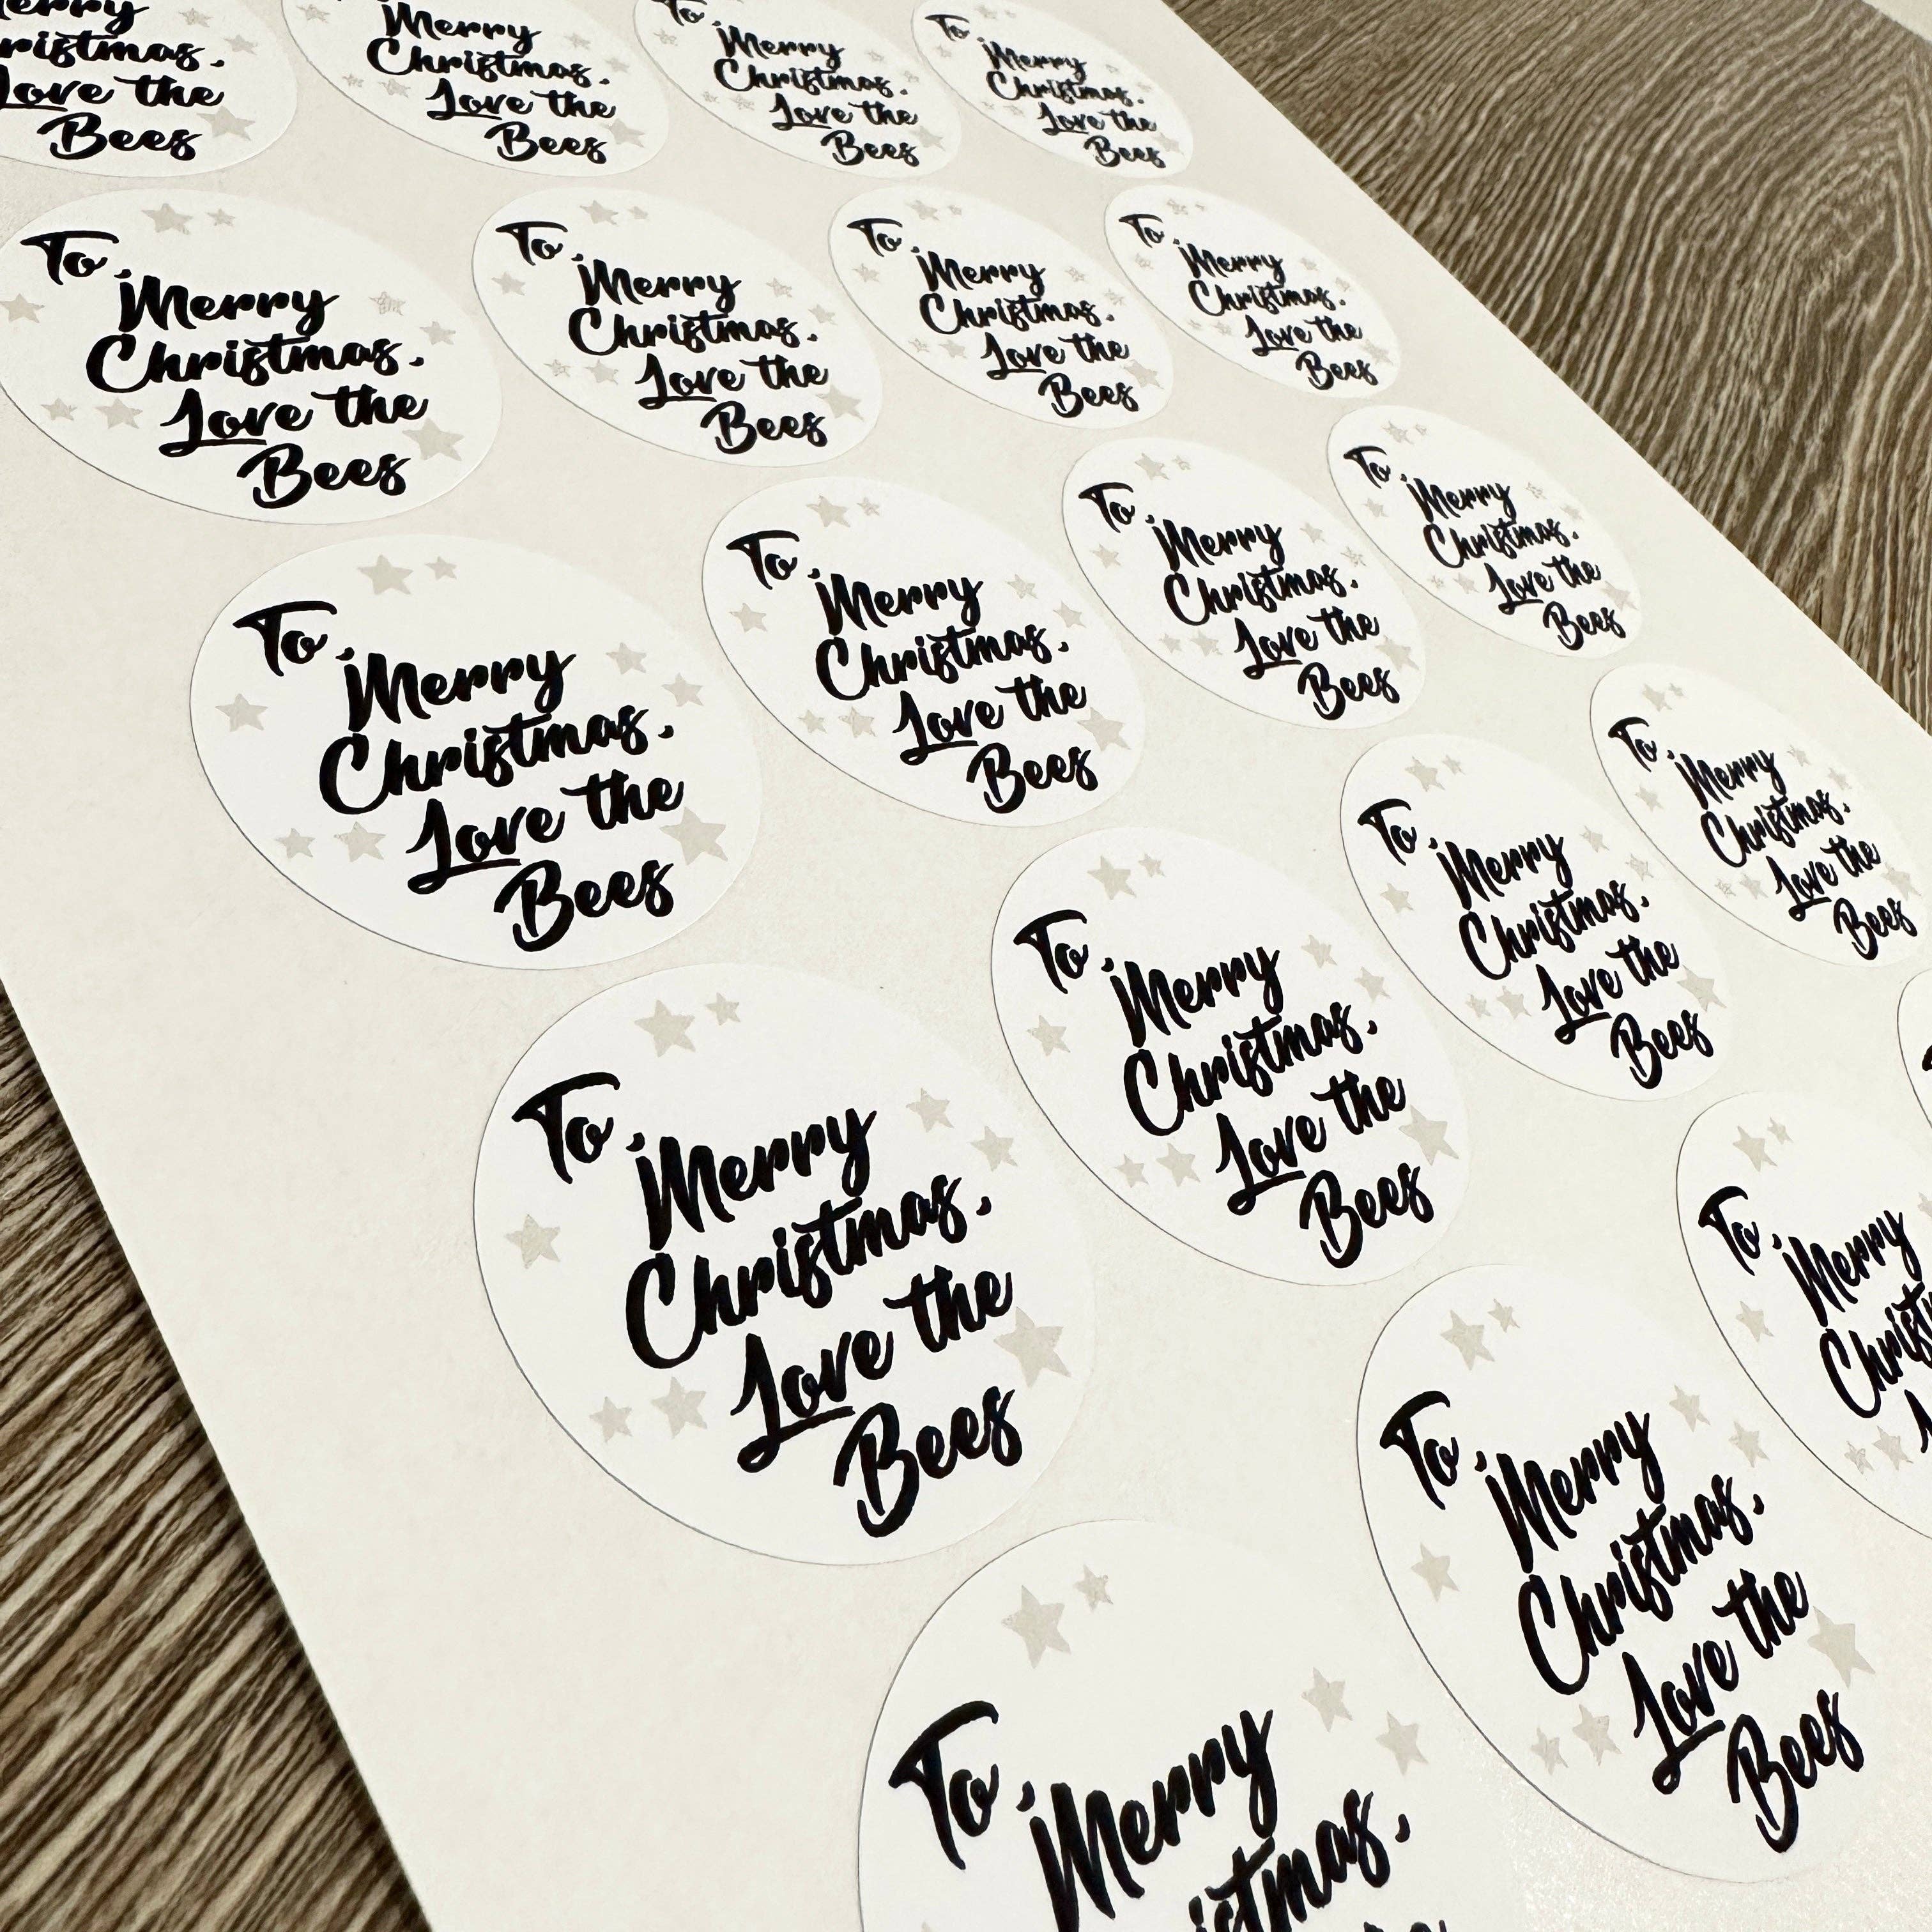 Merry
Christmas,
Love the
Bees
Merry
Christmas,
Love the
Bees
To ,
Merry
Christmas,
Love the
Bees
To ,
Merry
Christmas,
Love the
Bees
To ,
Merry
Christmas,
Love the
Bees
To ,
Merry
Christmas,
Love the
Bees
To ,
Merry
Christmas,
Love the
Bees
To ,
Merry
Christmas,
Love the
Bees
To ,
Merry
Christmas,
Love the
Bees
To ,
Merry
Christmas,
Love the
Bees
To ,
Merry
Christmas,
Love the
Bees
To ,
Merry
Christmas,
Love the
Bees
To ,
Merry
Christmas,
Love the
Bees
To ,
Merry
Christmas,
Love the
Bees
To ,
Merry
Christmas,
Love the
Bees
To ,
Merry
Christmas,
Love the
Bees
To ,
Merry
To ,
Merry
Christmas,
Love the
Bees
To ,
Merry